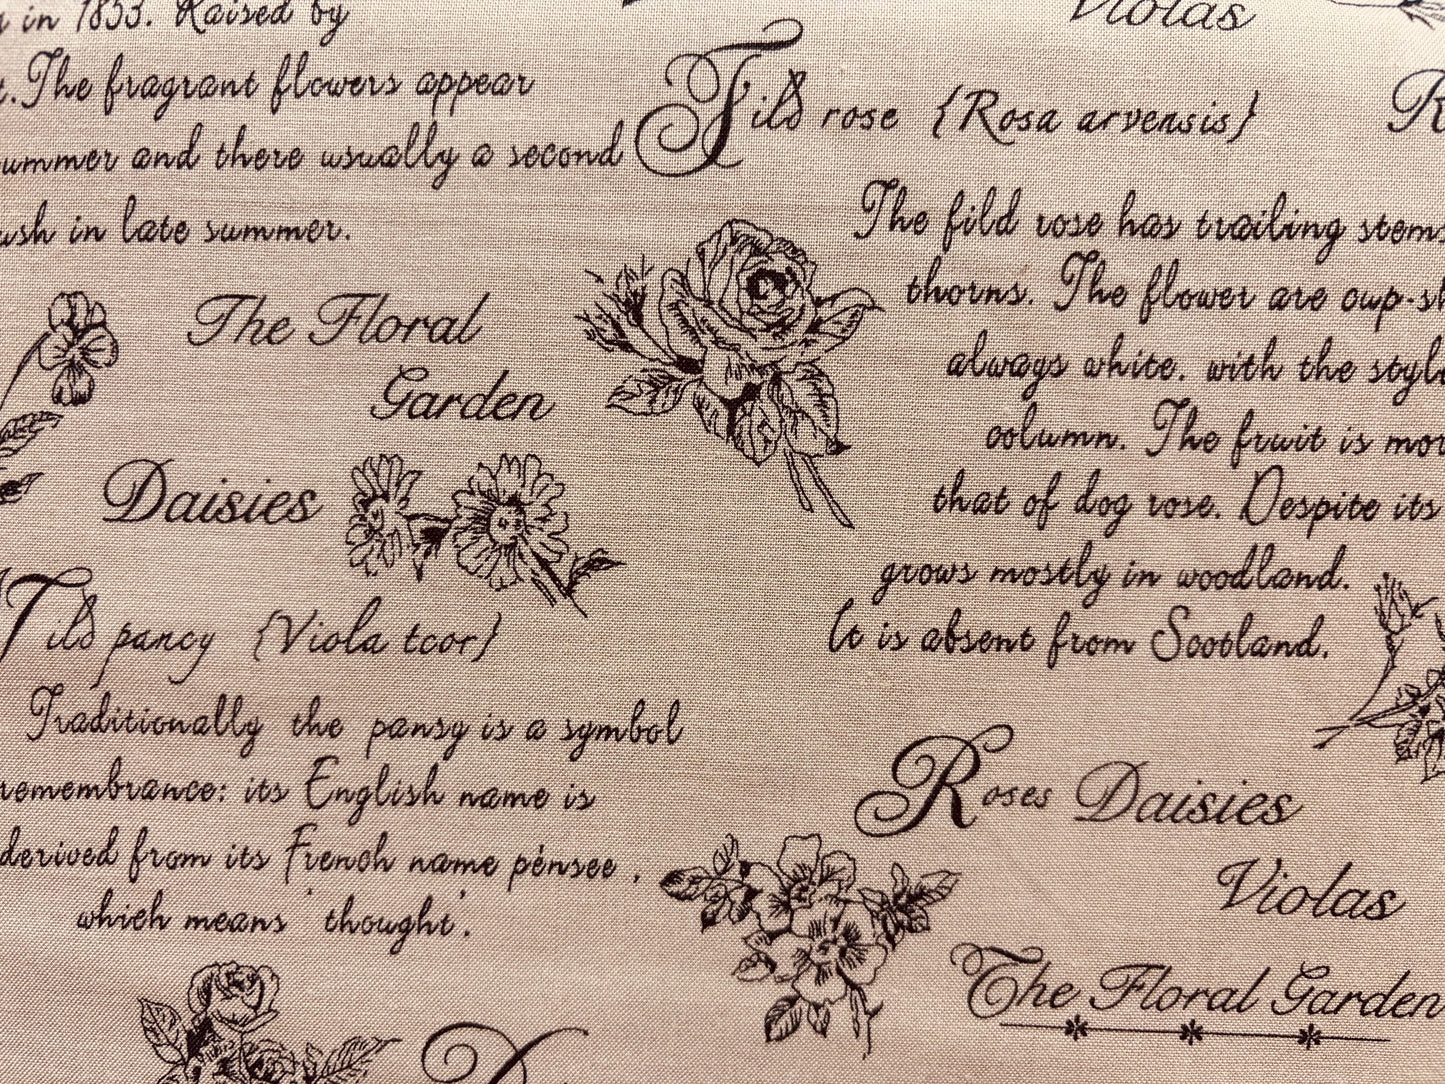 in 1853. Raised by
The fragrant flowers appear
summer and there usually a second
ush in late summer.
The Floral
Garden
Daisies
Fild pancy {Viola tcor}
Traditionally the pansy is a symbol
remembrance: its English name is
derived from its French name pénsee ,
which means 'thought'.
Violas
Fild rose {Rosa arvensis}
R
The fild rose has trailing stems
thorns. The flower are cup-sh
always white. with the styl
column. The fruit is mor
that of dog rose. Despite its
grows mostly in woodland.
It is absent from Scotland.
Roses Daisies
Violas
The Floral Garden